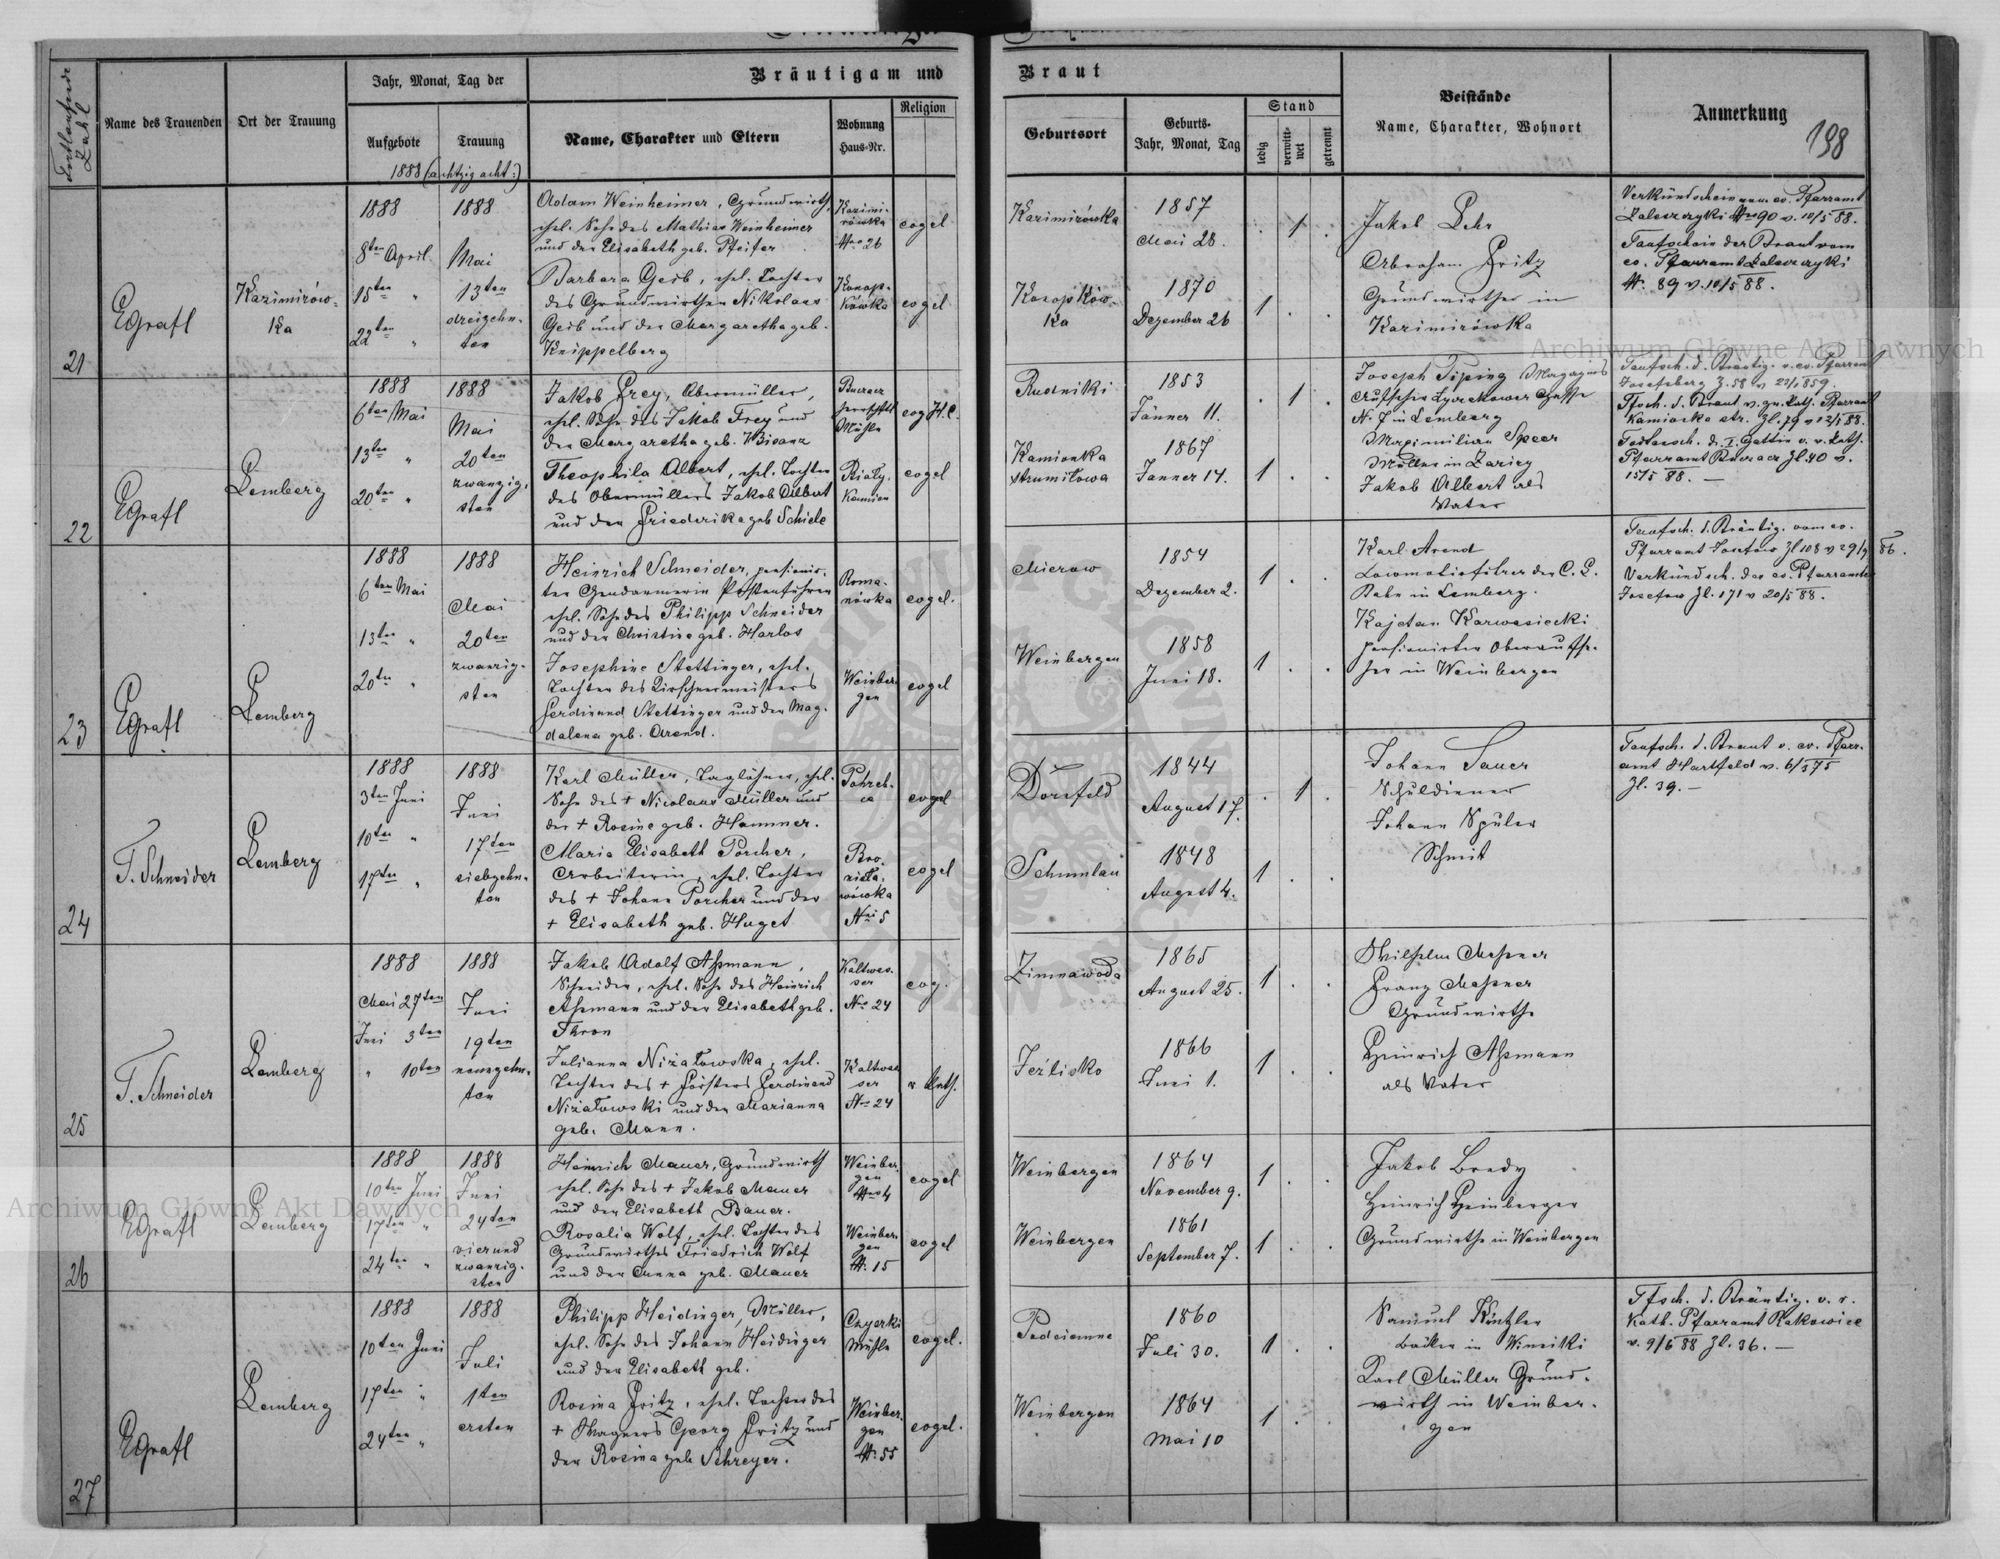 Bräutigam und Braut
198
Fortlaufende Zahl
Name des Trauenden
Ort der Trauung
Jahr, Monat, Tag der
Aufgebote
Trauung
Name, Charakter und Eltern
Wohnung
Haus-Nr.
Religion
Geburtsort
Geburts-
Jahr, Monat, Tag
Stand
ledig
verwitt-
wet
getrennt
Beistände
Name, Charakter, Wohnort
Anmerkung
1888 (achtzig acht:)
21
EGrafl
Kazimirów-
ka
1888
8ten April
15ten "
22ten "
1888
Mai
13ten
dreizehn-
ten
Adam Weinheimer, Grundwirth,
ehel. Sohn des Mathias Weinheimer
und der Elisabeth geb. Pfeifer
Barbara Geib, ehel. Tochter
des Grundwirthen Nikolaus
Geib und der Margaretha geb.
Knippelberg
Kazimi-
rówka
Nro 26
Konop-
kówka
evgel
evgel
Kazimirówka
1857
Mai 28.
. 1 .
Konopków-
ka
1870
Dezember 26
1 . .
Jakob Lehr
Abraham Fritz
Grundwirthe in
Kazimirówka
Verkündschein vom ev. Pfarramt
Zaleszczyki Nro 90 v. 10/5 88.
Taufschein der Braut vom
ev. Pfarramt Zaleszczyki
N. 89 v. 10/5 88.
22
EGrafl
Lemberg
1888
6ten Mai
13ten "
20ten "
1888
Mai
20ten
zwanzig-
sten
Jakob Frey, Obermüller,
ehel. Sohn des Jakob Frey und
der Margaretha geb. Bisanz
Theophila Albert, ehel. Tochter
des Obermüllers Jakob Albert
und der Friederika geb Schiele
Mühle
Biały-
Kamien
evg H.C.
evgel
Rudniki
1853
Jänner 11.
. 1 .
Kamionka
strumiłowa
1867
Janner 14.
1 . .
Joseph
N. 7 in Lemberg
Maximilian Speer
Müller in
Jakob Albert als
Vater
Taufsch. d. Bräutig. v. ev. Pfarramt
Josefsberg Z. 58
Tfsch. d. Braut v. gr. kath. Pfarramt
Kamionka str. Zl. 79 v 12/1 88.
Todtensch. d. I. Gattin v. r. kath.
Pfarramt Zl. 40 v.
15/5 88. —
23
EGrafl
Lemberg
1888
6ten Mai
13ten "
20ten "
1888
Mai
20ten
zwanzig-
sten
Heinrich Schneider, pensionir-
ter Gendarmerie Postenführer
ehel. Sohn des Philipp Schneider
und der Christine geb. Harlos
Josephine Stettinger, ehel.
Tochter des Kirschnermeisters
Ferdinand Stettinger und der Mag-
dalena geb. Arend.
Roma-
nówka
Weinber-
gen
evgel.
evgel
Mierow
1854
Dezember 2.
1 . .
Weinbergen
1858
Juni 18.
1 . .
Karl Arend
Locomotivführer der C. L.
Bahn in Lemberg.
Kajetan Karwasiecki
pensionirter Oberaufse-
her in Weinbergen
Taufsch. d. Bräutig. vom ev.
Pfarramt Josefow Zl 108 v 29/9 86.
Verkündsch. des ev. Pfarramtes
Josefow Zl. 171 v 20/5 88.
24
T. Schneider
Lemberg
1888
3ten Juni
10ten "
17ten "
1888
Juni
17ten
siebzehn-
ten
Karl Müller, Taglöhner, ehel.
Sohn des + Nicolaus Müller und
der + Rosine geb. Hammer.
Maria Elisabeth Porcher,
Arbeiterin, ehel. Tochter
des + Johann Porcher und der
+ Elisabeth geb. Huget
Bro-
nisła-
wówka
Nro 5
evgel
evgel
Dornfeld
1844
August 17.
. 1 .
Schumlau
1848
August 4.
1 . .
Johann Sauer
Schuldiener
Johann Spuler
Schmit
Taufsch. d. Braut v. ev. Pfarr-
amt Hartfeld v. 6/5 75
Zl. 39. —
25
T. Schneider
Lemberg
1888
Mai 27ten
Juni 3ten
" 10ten
1888
Juni
19ten
neunzehn-
ten
Jakob Adolf Aßmann,
Schneider, ehel. Sohn des Heinrich
Aßmann und der Elisabeth geb.
Thron
Julianna Niżałowska, ehel.
Tochter des + Försters Ferdinand
Niżałowski und der Marianna
geb. Mann.
Kaltwas-
ser
No 24
Kaltwas-
ser
No 24
evg.
r kath.
Zimnawoda
1865
August 25.
1 . .
Jeżlisko
1866
Juni 1.
1 . .
Wilhelm Meßner
Franz Meßner
Grundwirthe
Heinrich Aßmann
als Vater
26
EGrafl
Lemberg
1888
10ten Juni
17ten "
24ten "
1888
Juni
24ten
vierund
zwanzig-
sten
Heinrich Mauer, Grundwirth
ehel. Sohn des + Jakob Mauer
und der Elisabeth Bauer.
Rosalia Wolf, ehel. Tochter des
Grundwirthes Friedrich Wolf
und der Anna geb. Mauer
Weinber-
gen
Nro 4
Weinber-
gen
N. 15
evgel
evgel
Weinbergen
1864
November 9.
1 . .
Weinbergen
1861
September 7.
1 . .
Jakob Bredy
Heinrich Heinberger
Grundwirthe in Weinbergen
27
EGrafl
Lemberg
1888
10ten Juni
17ten "
24ten "
1888
Juli
1ten
ersten
Philipp Heidinger, Müller,
ehel. Sohn des Johann Heidinger
und der Elisabeth geb.
Rosina Fritz, ehel. Tochter des
+ Wagners Georg Fritz und
der Rosina geb Schreyer.
Czyerki
Mühle
Weinber-
gen
N. 55
evgel.
evgel.
Podciemne
1860
Juli 30.
1 . .
Weinbergen
1864
Mai 10
1 . .
Samuel Kintzler
Bäcker in Winniki
Karl Müller Grund-
wirth in Weinber-
gen
Tfsch. d. Bräutig. v. r.
kath. Pfarramt Rakowiec
v. 9/6 88 Zl. 36. —
Archiwum Główne Akt Dawnych
Archiwum Główne Akt Dawnych
ARCHIWUM GŁÓWNE AKT DAWNYCH